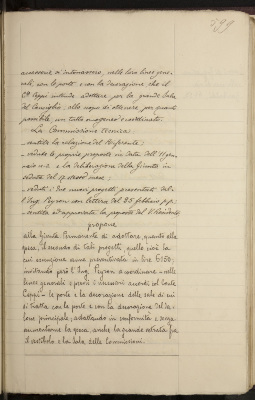 accessorie si intonassero, nelle loro linee gene-
rali, con le porte e con la decorazione che il
C.te Ceppi intende adottare per la grande Sala
del Consiglio, allo scopo di ottenere per quanto
possibile, un tutto omogeneo e coordinato.
La Commissione tecnica:
- sentita la relazione del Referente;
- vedute le proprie proposte in data dell' 11 gen-
naio u.s. e la deliberazione della Giunta in
seduta del 17 stesso mese;
- veduti i due nuovi progetti presentati dal-
l'Ing. Peyron con lettera del 25 febbraio p.p.;
- sentita ed approvata la proposta del V. Presidente
propone
alla Giunta Permanente di adottare, quanto alla
spesa, il secondo di tali progetti, quello cioè la
cui esecuzione venne preventivata in lire 6150,
invitando però l'Ing. Peyron a coordinare - nelle
linee generali e previi i necessari accordi col Conte
Ceppi - le porte e la decorazione delle sale di cui
si tratta con le porte e con la decorazione del sa-
lone principale; adottando in conformità e senza
aumentarne la spesa, anche la grande vetrata fra
il vestibolo e la Sala delle Commissioni.